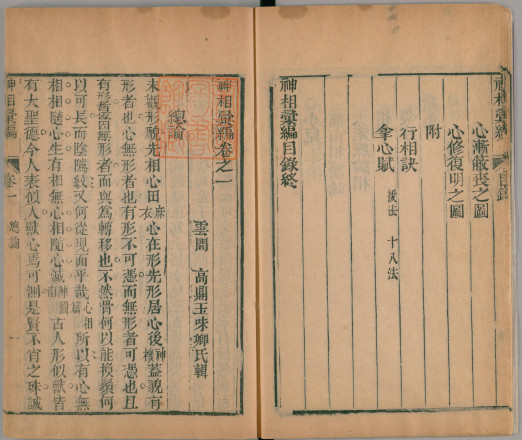 神相彙編 目錄
心漸蔽喪之圖
心修復明之圖
附
行相訣 捷法 十八法
拿心賦
神相彙編目錄終
神相彙編卷之一
雲間 高鼎玉味卿氏輯
總論
未觀形貌先相心田麻衣心在形先形居心後神機蓋貌有
形者也心無形者也有形不可憑而無形者可憑也且
有形者因無形者而與為轉移也不然骨何以能換額何
以可長而陰隲紋又何從現面乎哉心相篇所以有心無
相相隨心生有相無心相隨心滅神圖南古人形似獸皆
有大聖德今人表似人獸心焉可測是賢不肖之殊誠
神相彙編 卷一 總論